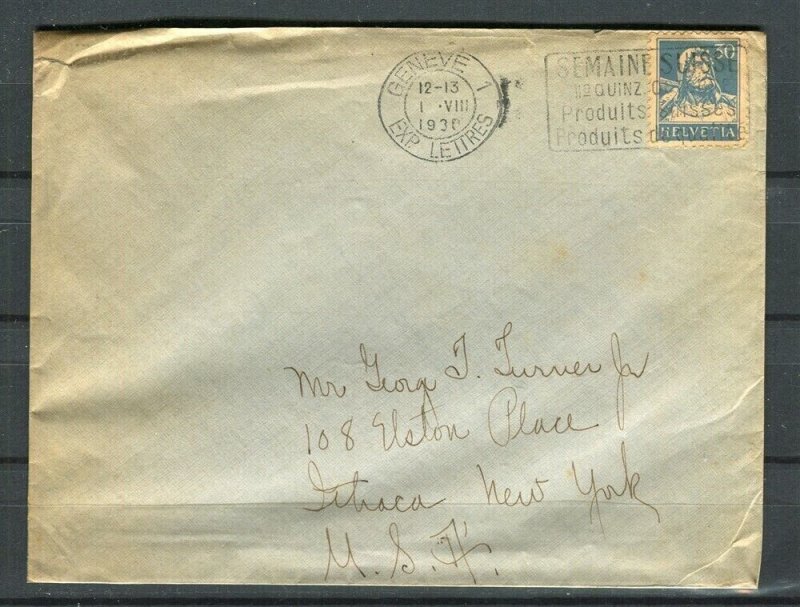 GENEVE 1
12-13
1 VIII
1930
EXP. LETTRES
SEMAINE SUISSE
QUINZ
Produits suisses
Produits de
30
HELVETIA
Mr Georg T. Turner Jr
108 Elston Place
Ithaca New York
U.S.A.